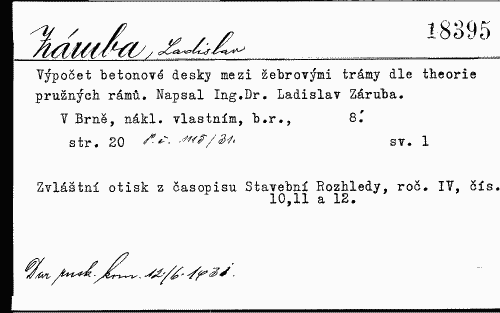 Záruba, Ladislav
18395
Výpočet betonové desky mezi žebrovými trámy dle theorie
pružných rámů. Napsal Ing.Dr. Ladislav Záruba.
V Brně, nákl. vlastním, b.r., 8°.
str. 20 sv. 1
Zvláštní otisk z časopisu Stavební Rozhledy, roč. IV, čís.
10,11 a 12.
Dar kom. 12/6. 1931.